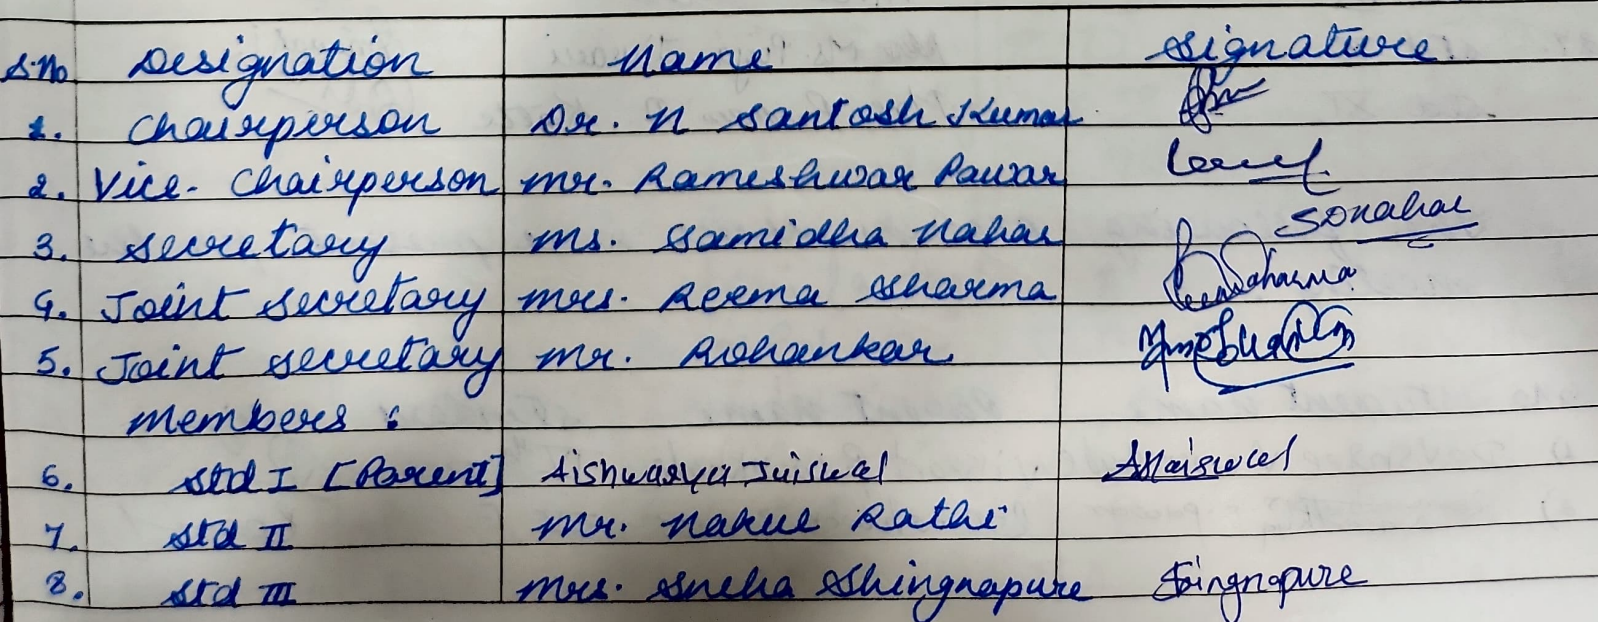 S.No Designation Name Signature.
1. Chairperson Dr. N Santosh Kumar
2. Vice- Chairperson Mr. Rameshwar Pawar
3. Secretary Ms. Samidha Nahar SDNahar
4. Joint Secretary Mrs. Reema Sharma Sharma
5. Joint Secretary Mr. Rohankar
Members :
6. Std I [Parent] Aishwarya Jaiswal AJaiswal
7. Std II Mr. Nakul Rathi
8. Std III Mrs. Sneha Shingnapure Shingnapure